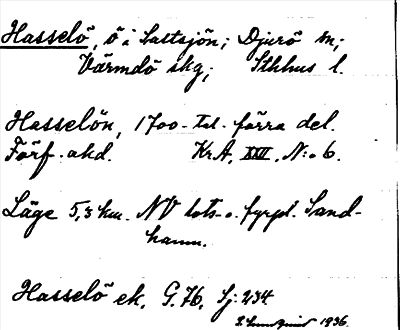 Hasselö, ö i Saltsjön; Djurö sn;
Värmdö skg; Sthlms l.
Hasselön, 1700-tal. förra del.
Förf. okd. Kr.A. XXII, N:o 6.
Läge 5,3 km. NV lots- o. fyrpl. Sand-
hamn.
Hasselö ek. G.76. Sj: 234
1936.